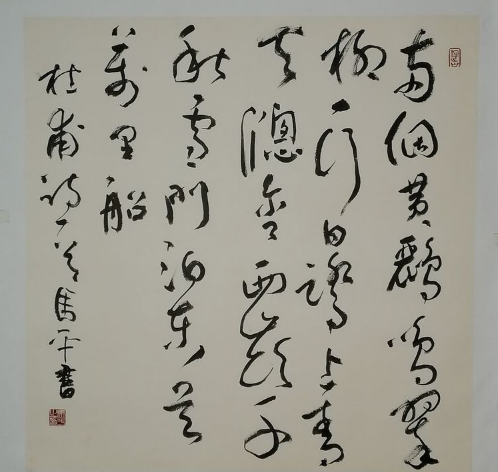 兩個黄鸝鳴翠
柳一行白鷺上青
天牕含西嶺千
秋雪門泊東吴
萬里船
杜甫詩一首馬平書